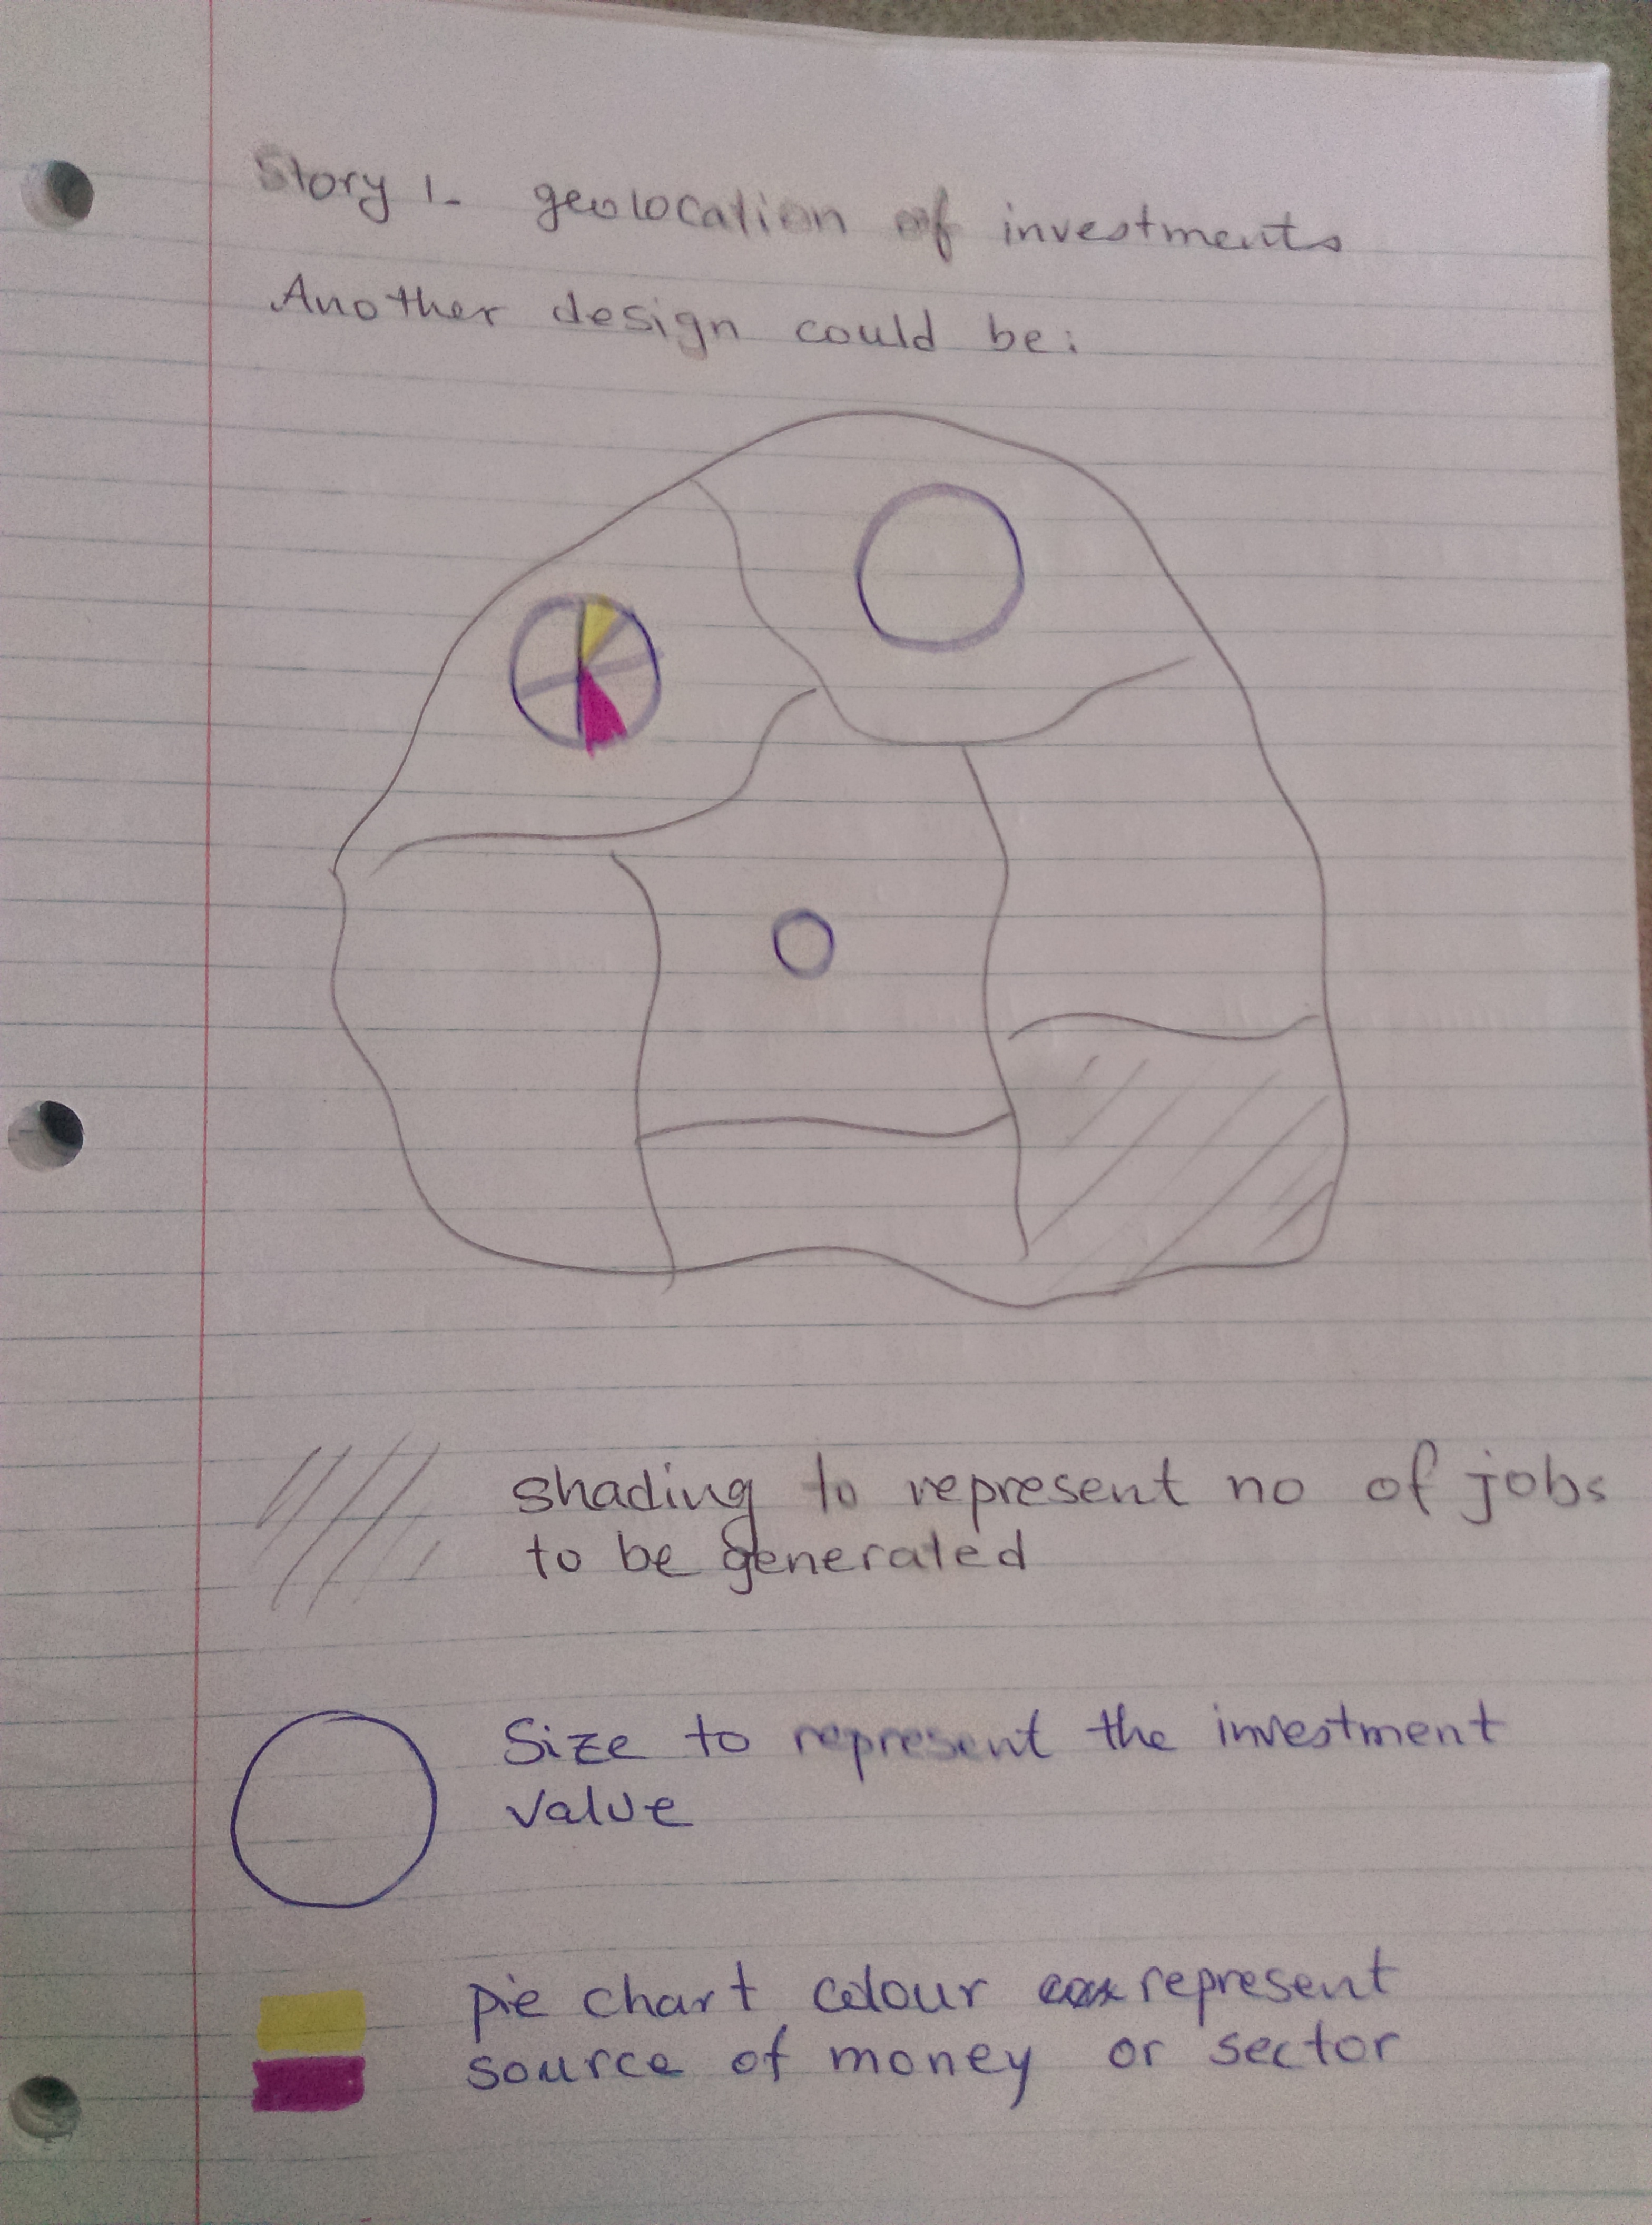 Story 1- geolocation of investments
Another design could be:
shading to represent no of jobs
to be generated
Size to represent the investment
value
pie chart colour represent
source of money or sector